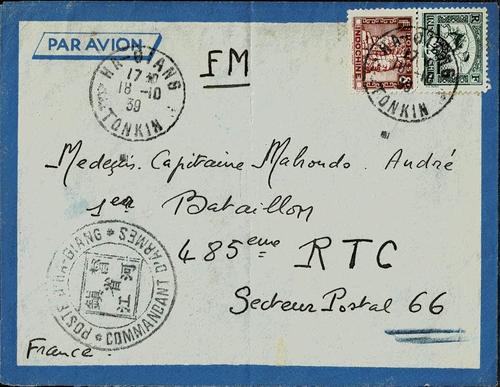 PAR AVION
FM
HA-GIANG
17
18-10
39
TONKIN
INDOCHINE
HA-GIANG
18-10
39
TONKIN
RF
Medeçin. Capitaine Mahondo. André
1er Bataillon
485eme RTC
Secteur Postal 66
POSTE D'HA-GIANG * COMMANDANT D'ARMES *
河江
省
鎮
France.